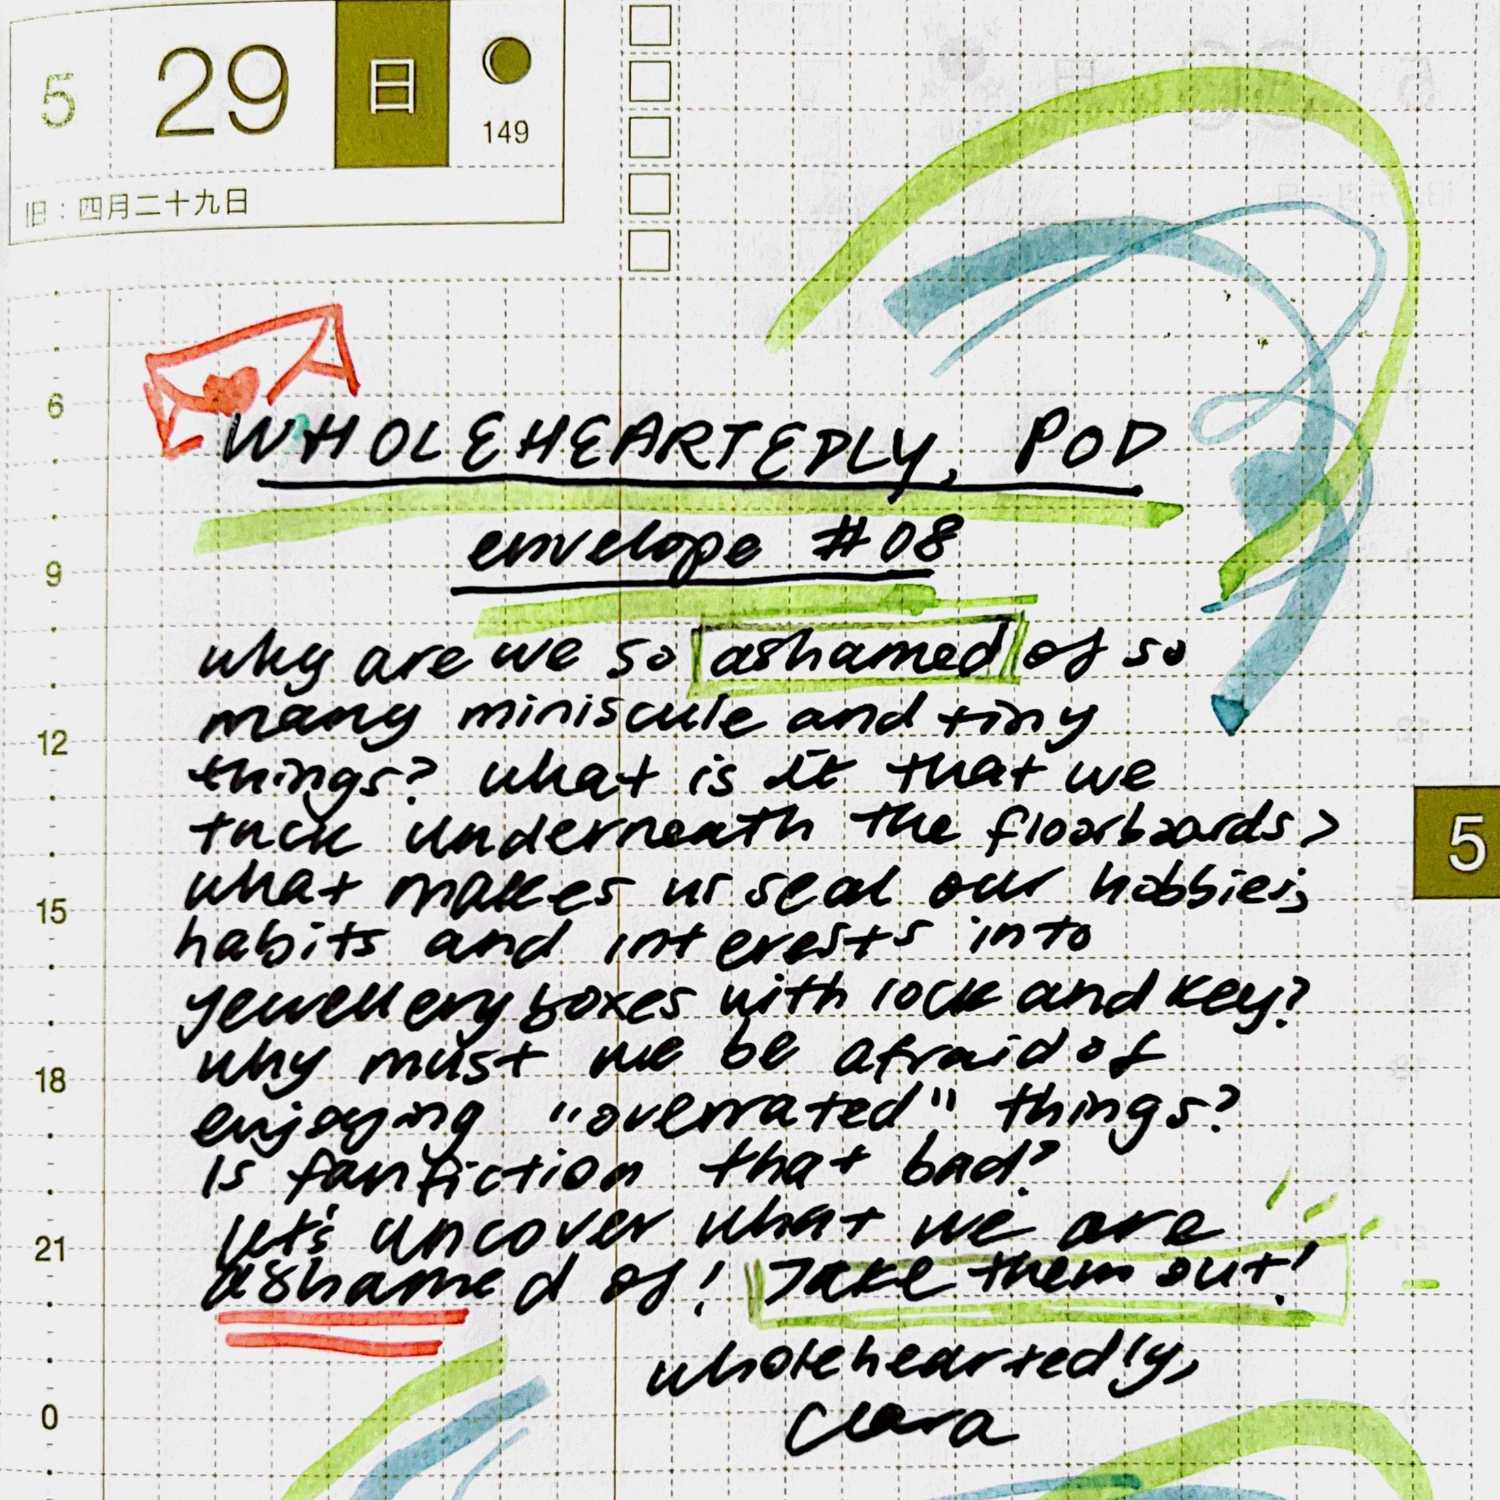 5 29 日 149
旧：四月二十九日
WHOLEHEARTEDLY, POD
envelope #08
why are we so ashamed of so
many miniscule and tiny
things? what is it that we
tuck underneath the floorboards?
what makes us seal our hobbies,
habits and interests into
jewellery boxes with lock and key?
why must we be afraid of
enjoying "overrated" things?
Is fanfiction that bad?
let's uncover what we are
ashamed of! Take them out!
wholeheartedly,
Clara
6
9
12
15
18
21
0
5